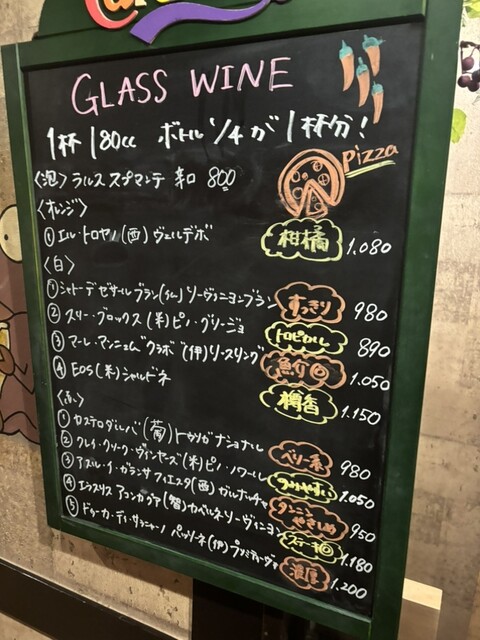 GLASS WINE
1杯 180cc ボトル 1/4 が 1杯分!
Pizza
〈泡〉 ラルス スプマンテ 辛口 800
〈オレンジ〉
① エル・トロヤノ(西) ヴェルデホ 柑橘 1.080
〈白〉
① シャトー・デ・ゼサール ブラン(仏) ソーヴィニヨンブラン すっきり 980
② スリー・ブロックス(米) ピノ・グリージョ トロピカル 890
③ マーレ・マンニュム クラボ(伊) リースリング 魚介◎ 1.050
④ EOS(米) シャルドネ 樽香 1.150
〈赤〉
① カステロダルバ(葡) トウリガナショナル ベリー系 980
② クレイ・クリーク・ヴィンヤーズ(米) ピノ・ノワール のみやすい 1.050
③ アスル・イ・ガランサ フィエスタ(西) ガルナッチャ タンニンやさしめ 950
④ エラスリス アコンカグア(智) カベルネソーヴィニヨン ステーキ◎ 1.180
⑤ ドゥーカ・ディ・サラニャーノ パッソーネ(伊) プリミティーヴォ 濃厚 1.200